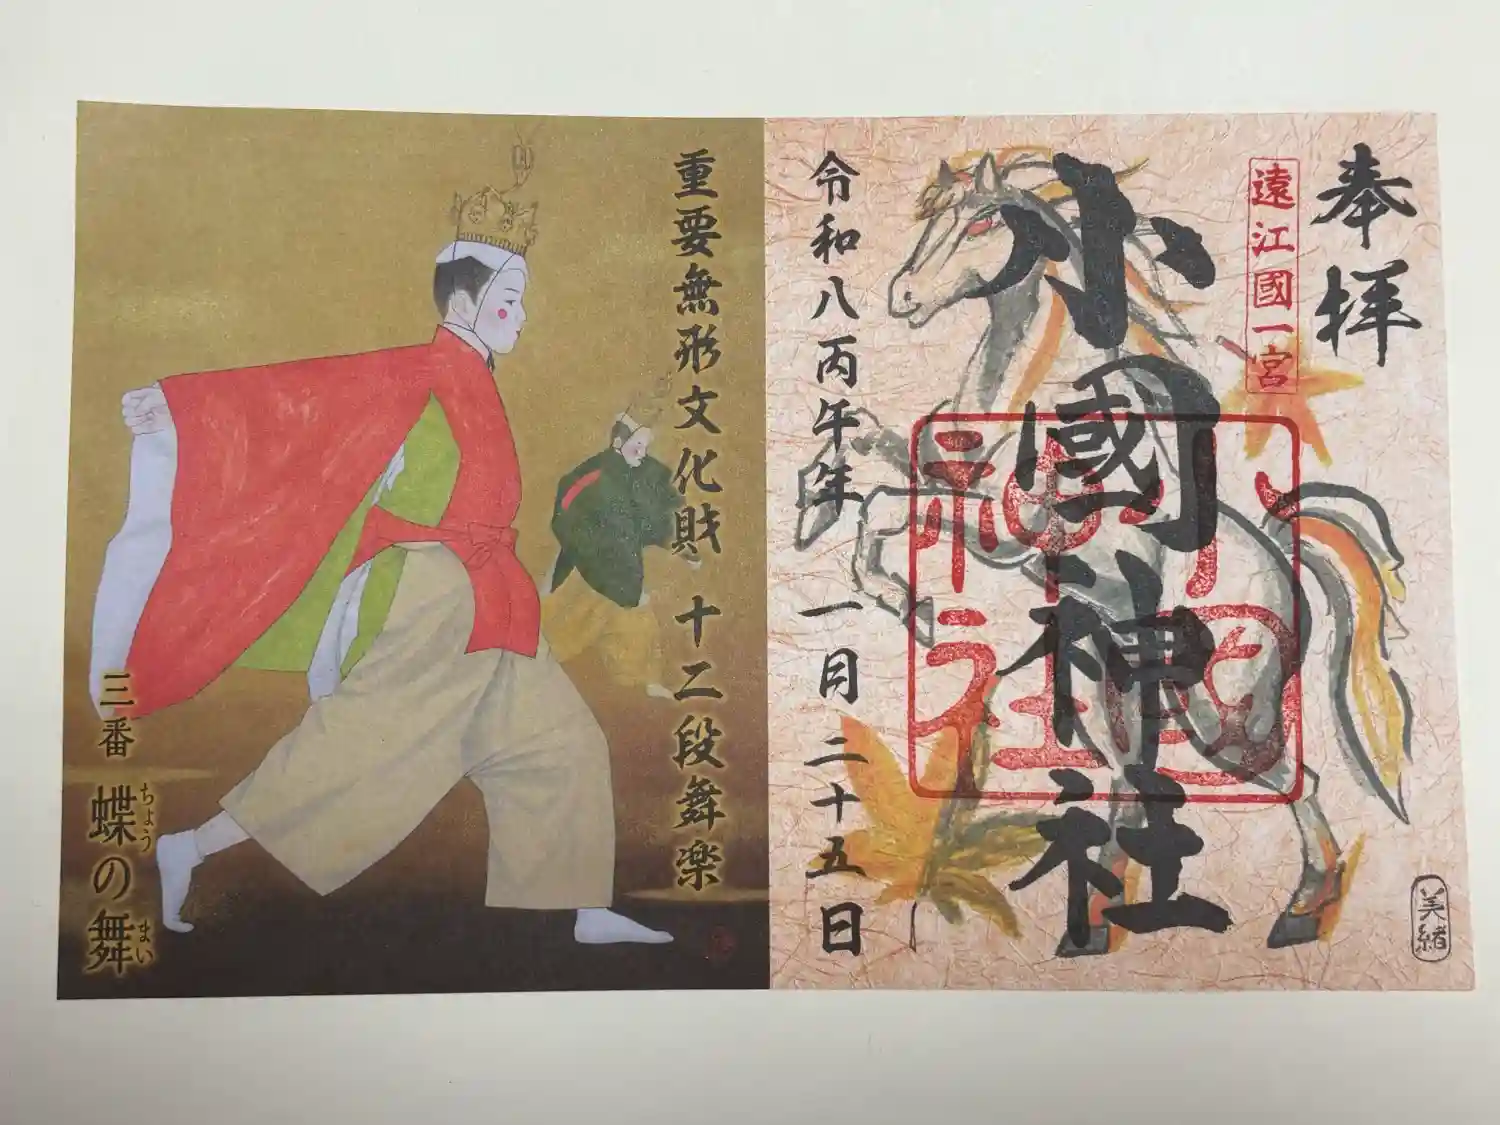 奉拝
遠江國一宮
小國神社
小國神社
令和八丙午年 一月二十五日
美緒
重要無形文化財 十二段舞楽
三番 蝶の舞
ちょう まい